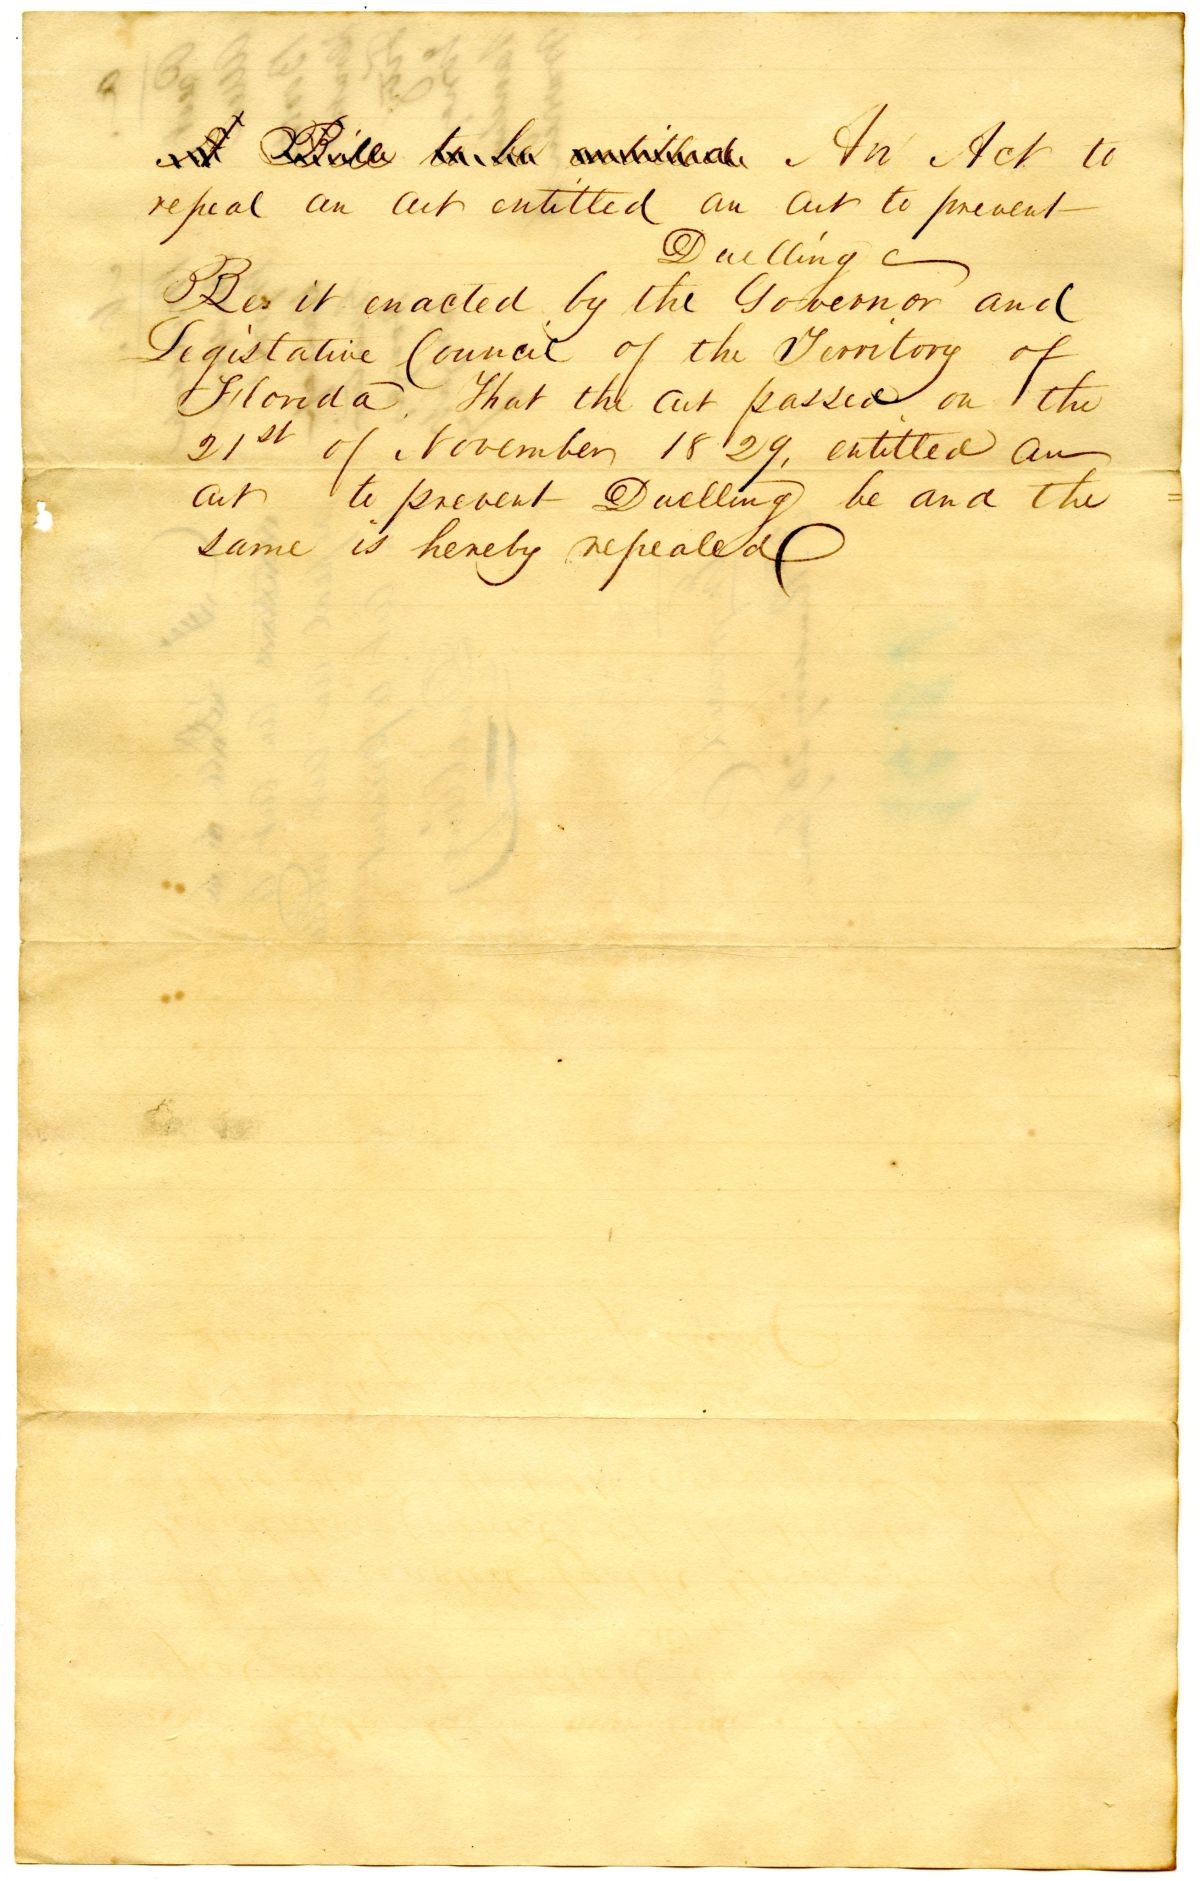 A Bill to be entitled An Act to
repeal an act entitled an act to prevent
Duelling
Be it enacted by the Governor and
Legislative Council of the Territory of
Florida, That the act passed on the
21st of November 1829, entitled an
act to prevent Duelling be and the
same is hereby repealed